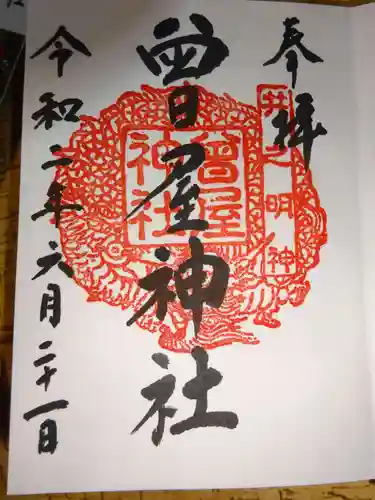 奉拝
井之明神
曾屋神社
曾屋神社
令和二年六月二十一日